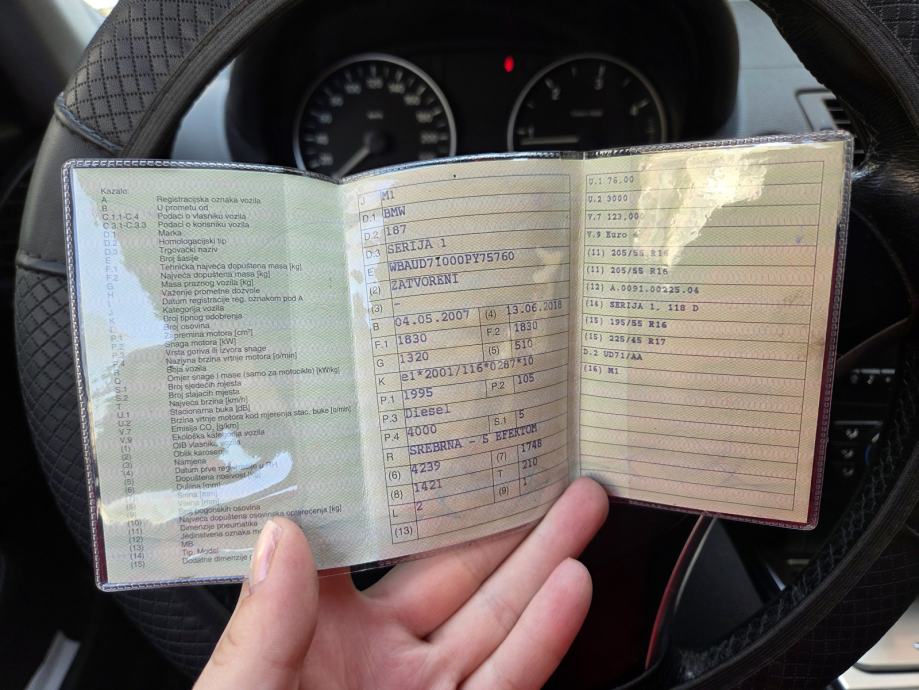 Kazalo:
A Registracijska oznaka vozila
B U prometu od
C.1.1-C.4 Podaci o vlasniku vozila
C.3.1-C.3.3 Podaci o korisniku vozila
D.1 Marka
D.2 Homologacijski tip
D.3 Trgovački naziv
E Broj šasije
F.1 Tehnička najveća dopuštena masa [kg]
F.2 Najveća dopuštena masa [kg]
G Masa praznog vozila [kg]
H Važenje prometne dozvole
Datum registracije reg. oznakom pod A
Kategorija vozila
Broj tipnog odobrenja
Broj osovina
P.1 Zapremina motora [cm³]
Snaga motora [kW]
Vrsta goriva ili izvora snage
Nazivna brzina vrtnje motora [o/min]
Boja vozila
Omjer snage i mase (samo za motocikle) [kW/kg]
S.1 Broj sjedećih mjesta
S.2 Broj stajaćih mjesta
T Najveća brzina [km/h]
U.1 Stacionarna buka [dB]
U.2 Brzina vrtnje motora kod mjerenja stac. buke [o/min]
V.7 Emisija CO₂ [g/km]
V.9 Ekološka kategorija vozila
(1) OIB vlasnika vozila
(2) Oblik karoserije
(3) Namjena
(4) Datum prve registracije u RH
(5) Dopuštena nosivost [kg]
(6) Dužina [mm]
(7) Širina [mm]
(8) Visina [mm]
(9) Broj pogonskih osovina
(10) Najveća dopuštena osovinska opterećenja [kg]
(11) Dimenzije pneumatika
(12) Jedinstvena oznaka
(13) MB
(14) Tip, Model
(15) Dodatne dimenzije
J M1
D.1 BMW
D.2 187
D.3 SERIJA 1
E WBAUD71000PY75760
(2) ZATVORENI
(3) -
B 04.05.2007 (4) 13.06.2018
F.1 1830 F.2 1830
G 1320 (5) 510
K e1*2001/116*0287*10
P.1 1995 P.2 105
P.3 Diesel
P.4 4000 S.1 5
R SREBRNA - S EFEKTOM
(6) 4239 (7) 1748
(8) 1421 T 210
L 2 (9) 1
(13)
U.1 76,00
U.2 3000
V.7 123,000
V.9 Euro 4
(11) 205/55 R16
(11) 205/55 R16
(12) A.0091.00225.04
(14) SERIJA 1, 118 D
(15) 195/55 R16
(15) 225/45 R17
D.2 UD71/AA
(16) M1